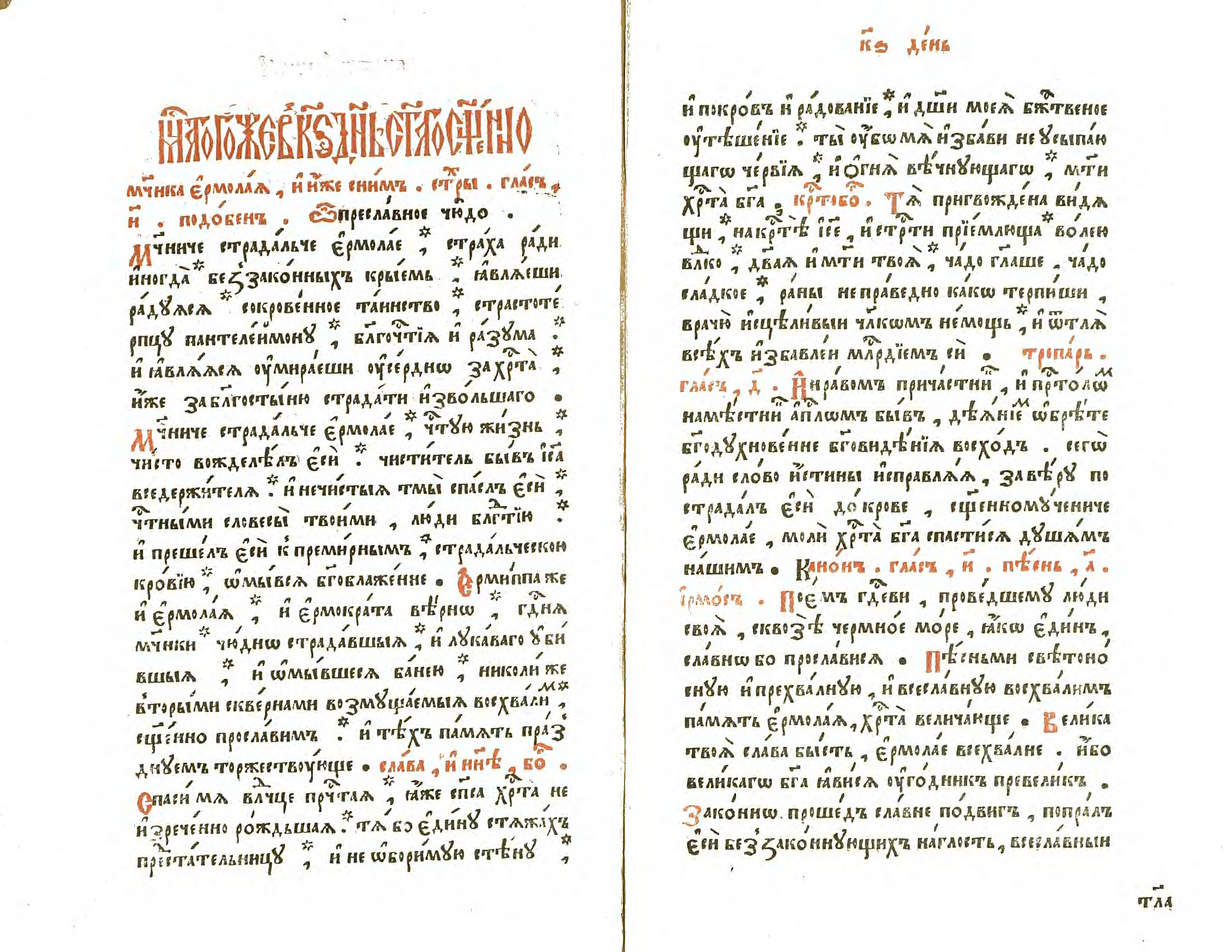 мч҃ника є҆рмола́ѧ , и҆ и҆́же сни́мъ . стр҃ы . гла́съ ,
и҃ . подо́бенъ . Ѽ пресла́вное чю́до .
Мч҃ниче страда́льче є҆рмола́е , * стра́ха ра́ди
и҆ногда̀ * беꙁꙁако́нныхъ кры́емь , * ꙗ҆влѧ́еши
ра́дуѧсѧ * сокрове́нное та́инство , * страстоте́
рпцу пантелеи́мону , * бл҃гоч҇тїѧ и҆ ра́зума . *
и҆ ꙗ҆влѧ́ѧсѧ оу҆мира́еши оу҆се́рднѡ за хр҇та̀ , *
и҆́же за бл҃госты́ню страда́ти и҆зво́льшаго .
Мч҃ниче страда́льче є҆рмола́е , * ч҇тую жи́знь , *
чи́сто вожделѣ́лъ є҆сѝ . * чисти́тель бы́въ і҆с҃а
вседержи́телѧ . * и҆ нечи́стыѧ тмы̀ спа́слъ є҆сѝ , *
ч҇тны́ми словесы̀ твои́ми , лю́ди бл҃г҇тїю . *
и҆ преше́лъ є҆сѝ к̾ преми́рнымъ , * страда́льческою
кро́вїю , * ѡ҆мы́всѧ бг҃облаже́нне . Є҆рми́ппа же
и҆ є҆рмола́ѧ , * и҆ є҆рмокра́та вѣ́рнѡ , * гд҇нѧ
мч҃ники * чю́днѡ страда́вшыѧ , * и҆ лука́ваго у҆би́
вшыѧ , * и҆ ѡ҆мы́вшесѧ ба́нею , * николи́ же
вторы́ми скве́рнами возмуща́емыѧ восхва́лимъ , *
сщ҃е́нно просла́вимъ . * и҆ тѣ́хъ па́мѧть пра́з
днуемъ торжеству́юще . сла́ва , и҆ ны́нѣ , бо҇ .
Спаси́ мѧ влч҇це прч҇таѧ , * ꙗ҆́же сп҃са хр҇та̀ не
и҆зрече́нно ро́ждьшаѧ . * тѧ́ бо є҆ди́ну стѧжа́хъ
предста́тельницу , * и҆ не ѡ҆бори́мую стѣ́ну , *
к҃ѕ де́нь
и҆ покро́въ и҆ ра́дованїе , * и҆ дш҃и моеѧ̀ бж҇твеное
оу҆тѣше́нїе . * ты̀ оу҆́бѡ мѧ̀ и҆зба́ви не у҆сыпа́ю
щагѡ че́рвїѧ , * и҆ ѻ҆гнѧ̀ вѣ́чнующагѡ , * мт҃и
хр҇та̀ бг҃а . кр҇тобо҇ . Тѧ̀ пригвожде́на ви́дѧ
щи , * на кр҇тѣ̀ і҆с҃е , и҆ стр҇ти прїе́млюща * во́лею
влд҇ко , * дваѧ и҆ мт҃и твоѧ̀ , * ча́до глаше , ча́до
сла́дкое , * ра́ны непра́ведно ка́кѡ терпи́ши ,
врачю̀ и҆сцѣли́выи чл҃кѡмъ не́мощь , * и҆ ѿ тлѧ̀
всѣ́хъ и҆зба́влеи млр҇дїемъ сѝ . тропа́рь .
гла́съ , д҃ . И҆ нра́вомъ прича́стни҇ , и҆ пр҇то́лѡм
намѣ́стни҇ а҆п҇лѡмъ бы́въ , дѣѧ́нїем ѡ҆брѣ́те
бг҃одухнове́нне бг҃овидѣ́нїѧ восхо́дъ . сегѡ̀
ра́ди сло́во и҆́стины и҆справлѧ́ѧ , за вѣ́ру по
страда́лъ є҆сѝ до́ крове , сщ҃енному́чениче
є҆рмола́е , молѝ хр҇та̀ бг҃а спасти́сѧ душа́мъ
на́шимъ . Кано́нъ . гла́съ , и҃ . пѣ́снь , а҃ .
і҆рмо́съ . Пое́мъ гд҇еви , прове́дшему лю́ди
своѧ̀ , сквозѣ̀ чермно́е мо́ре , ꙗ҆́кѡ є҆ди́нъ ,
сла́внѡ бо просла́висѧ . Пѣ́сньми свѣтоно́
сную и҆ прехва́лную , и҆ всесла́вную восхва́лимъ
па́мѧть є҆рмола́ѧ , хр҇та̀ велича́юще . Вели́ка
твоѧ̀ сла́ва бы́сть , є҆рмола́е всехва́лне . и҆́бо
вели́кагѡ бг҃а ꙗ҆ви́сѧ оу҆го́дникъ превели́къ .
Зако́ннѡ проше́дъ сла́вне по́двигъ , попра́лъ
є҆сѝ беꙁꙁако́ннующихъ на́глость , всесла́вныи
тл҃а